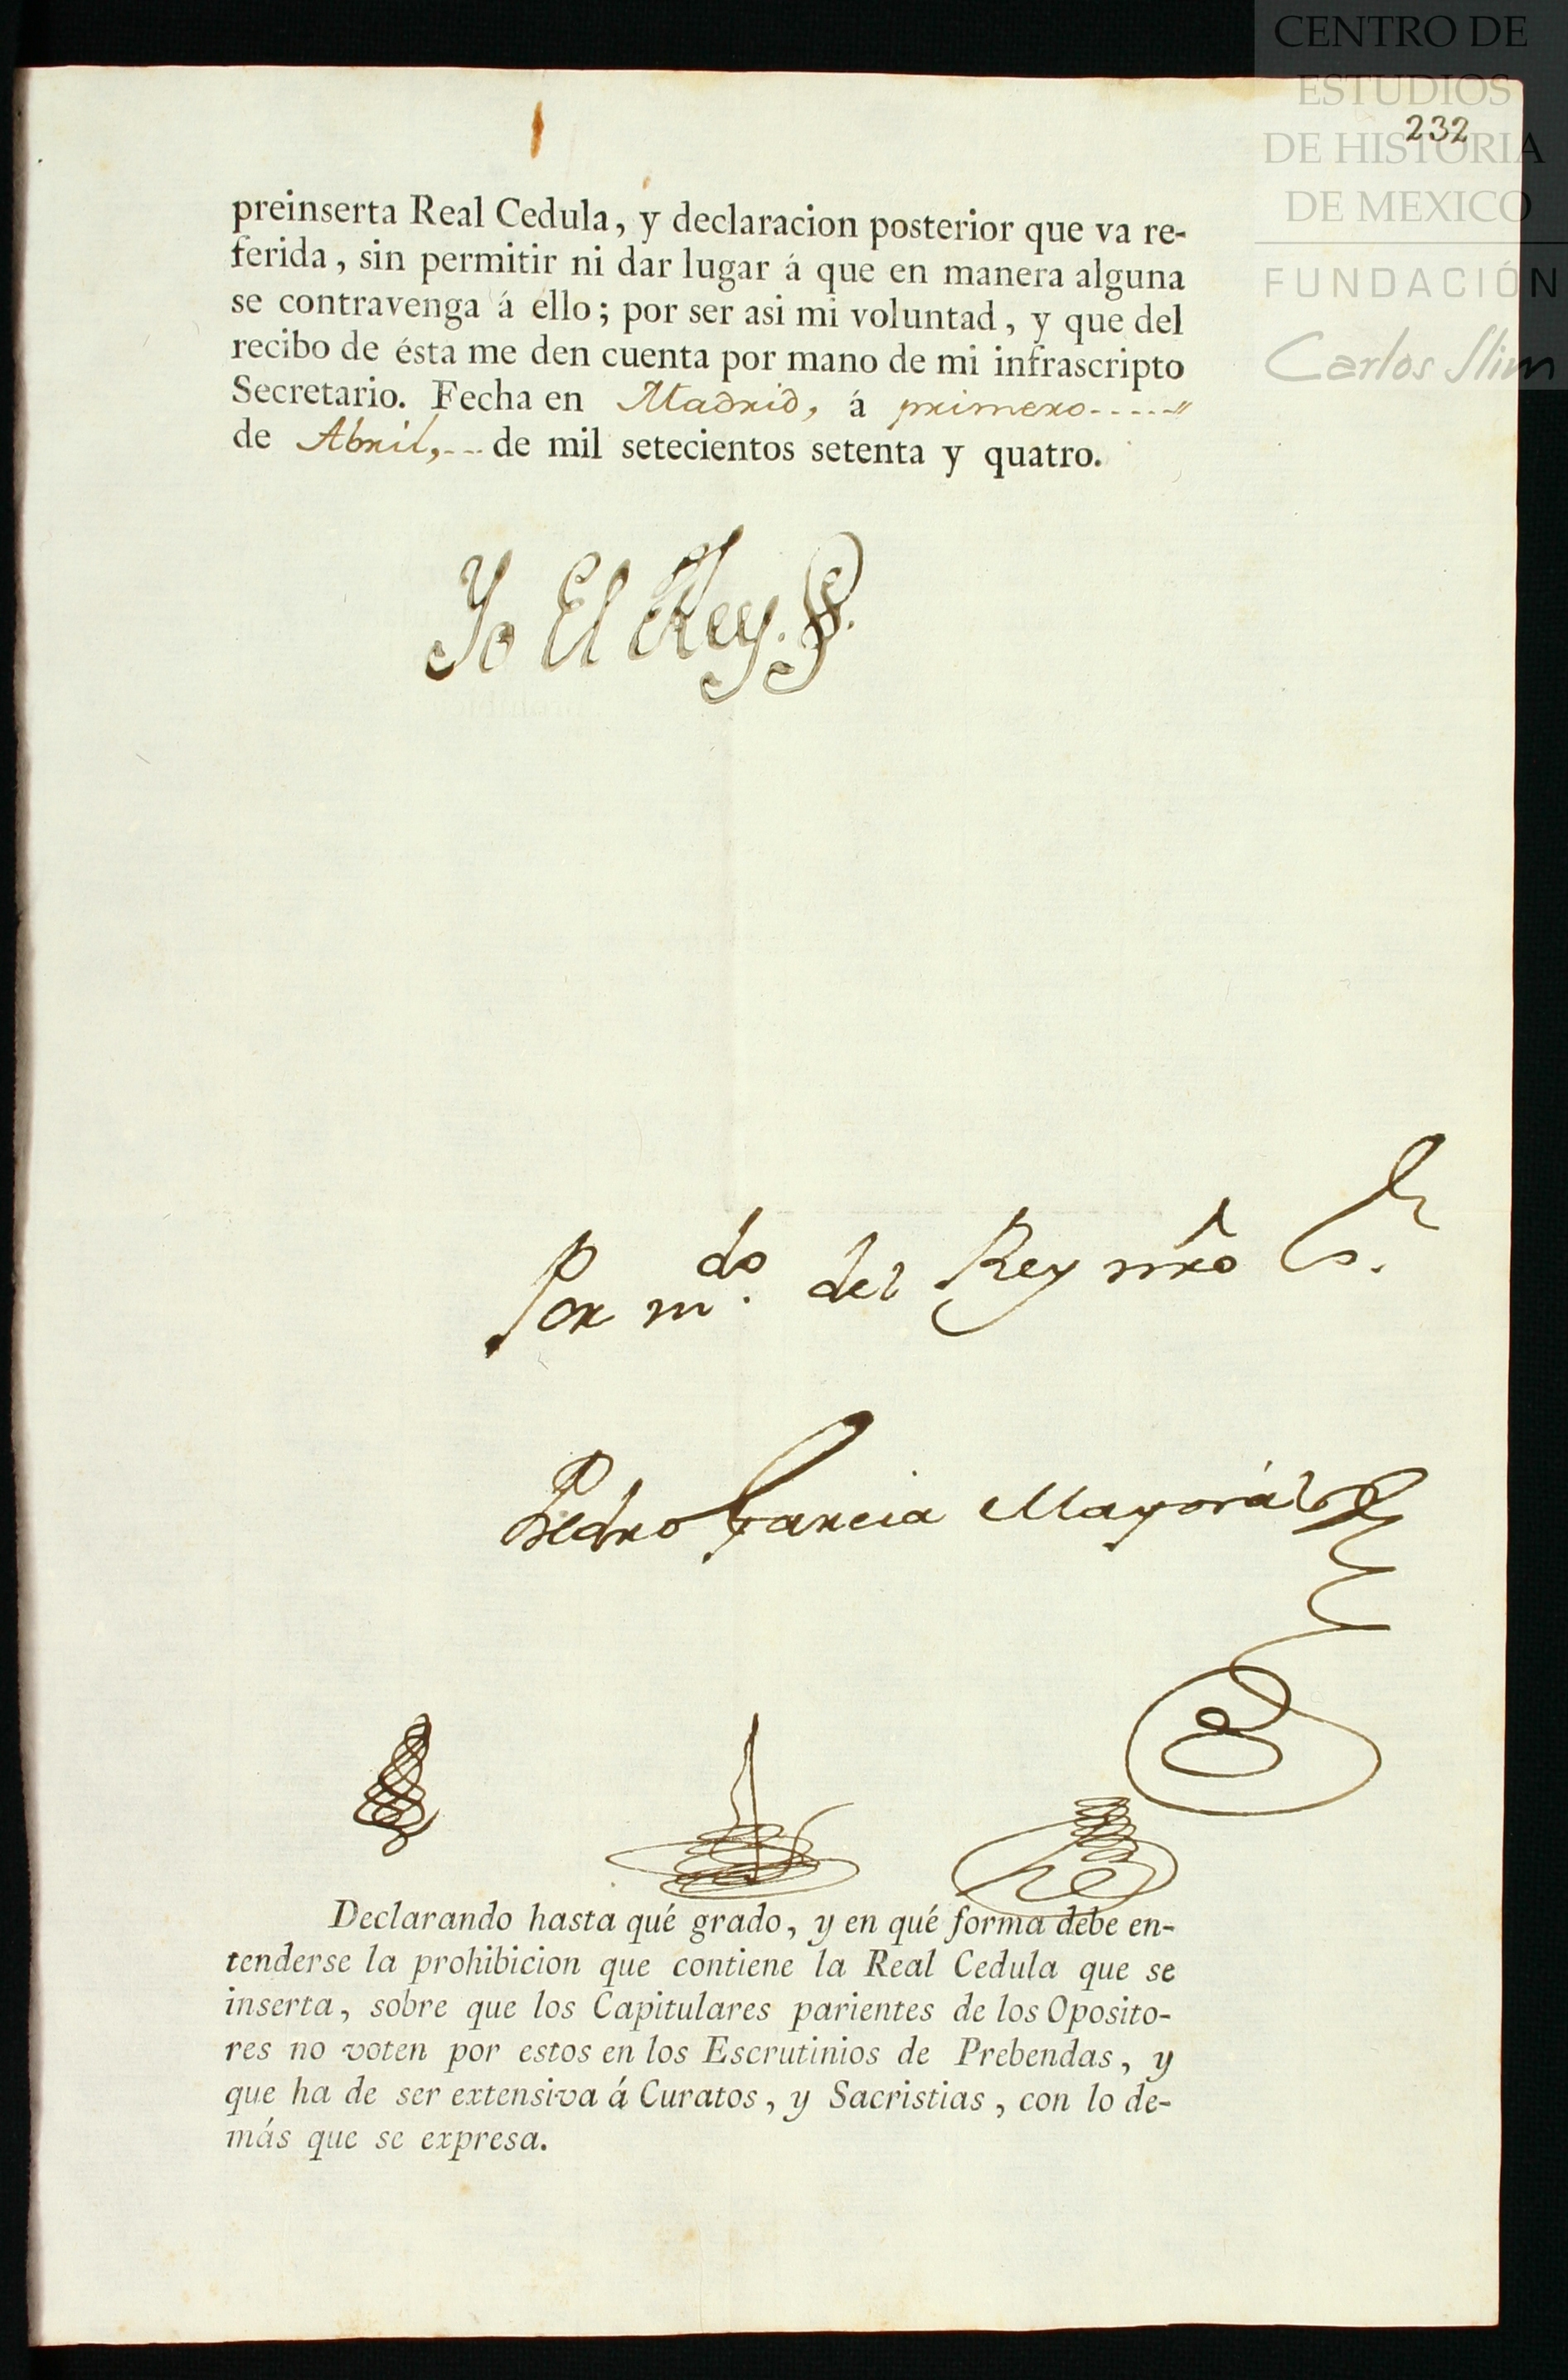 CENTRO DE
ESTUDIOS
DE HISTORIA
DE MEXICO
FUNDACIÓN
Carlos Slim
232
preinserta Real Cedula, y declaracion posterior que va re-
ferida, sin permitir ni dar lugar á que en manera alguna
se contravenga á ello; por ser asi mi voluntad, y que del
recibo de ésta me den cuenta por mano de mi infrascripto
Secretario. Fecha en Madrid, á primero
de Abril, de mil setecientos setenta y quatro.
Yo El Rey.
Por mdo. del Rey nro Sr.
Pedro Garcia Mayorál
Declarando hasta qué grado, y en qué forma debe en-
tenderse la prohibicion que contiene la Real Cedula que se
inserta, sobre que los Capitulares parientes de los Oposito-
res no voten por estos en los Escrutinios de Prebendas, y
que ha de ser extensiva á Curatos, y Sacristias, con lo de-
más que se expresa.